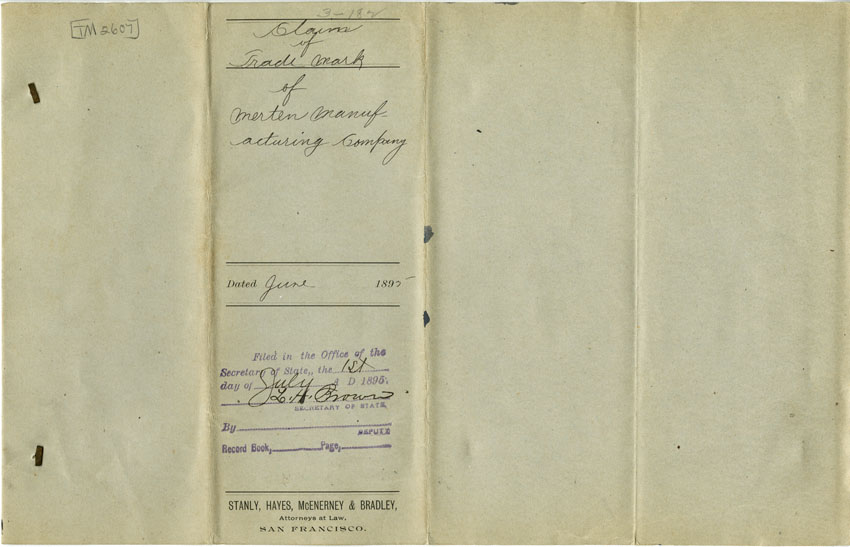 TM 2607
3-182
Claim
of
Trade Mark
of
Merten Manuf-
acturing Company
Dated June 1895
Filed in the Office of the
Secretary of State,, the 1st
day of July A D 1895.
L. H. Brown
SECRETARY OF STATE,
By
DEPUTY
Record Book, Page,
STANLY, HAYES, McENERNEY & BRADLEY,
Attorneys at Law,
SAN FRANCISCO.